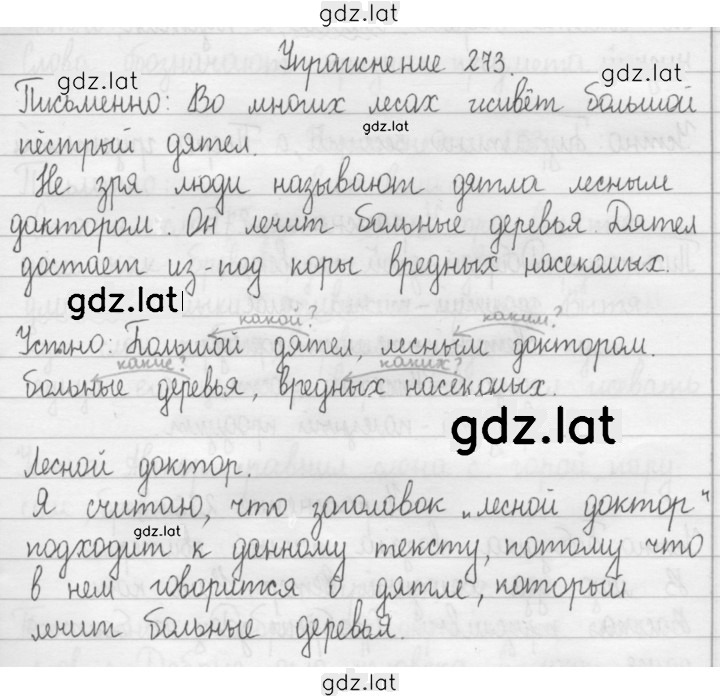 gdz.lat
Упражнение 273.
gdz.lat
Письменно: Во многих лесах живёт большой
gdz.lat
пёстрый дятел.
Не зря люди называют дятла лесным
доктором. Он лечит больные деревья. Дятел
достает из-под коры вредных насекомых.
gdz.lat
какой? каким?
Устно: Большой дятел, лесным доктором.
какие? каких?
больные деревья, вредных насекомых.
gdz.lat
Лесной доктор.
Я считаю, что заголовок „лесной доктор"
gdz.lat
подходит к данному тексту, потому что
в нем говорится о дятле, который
лечит больные деревья.
gdz.lat